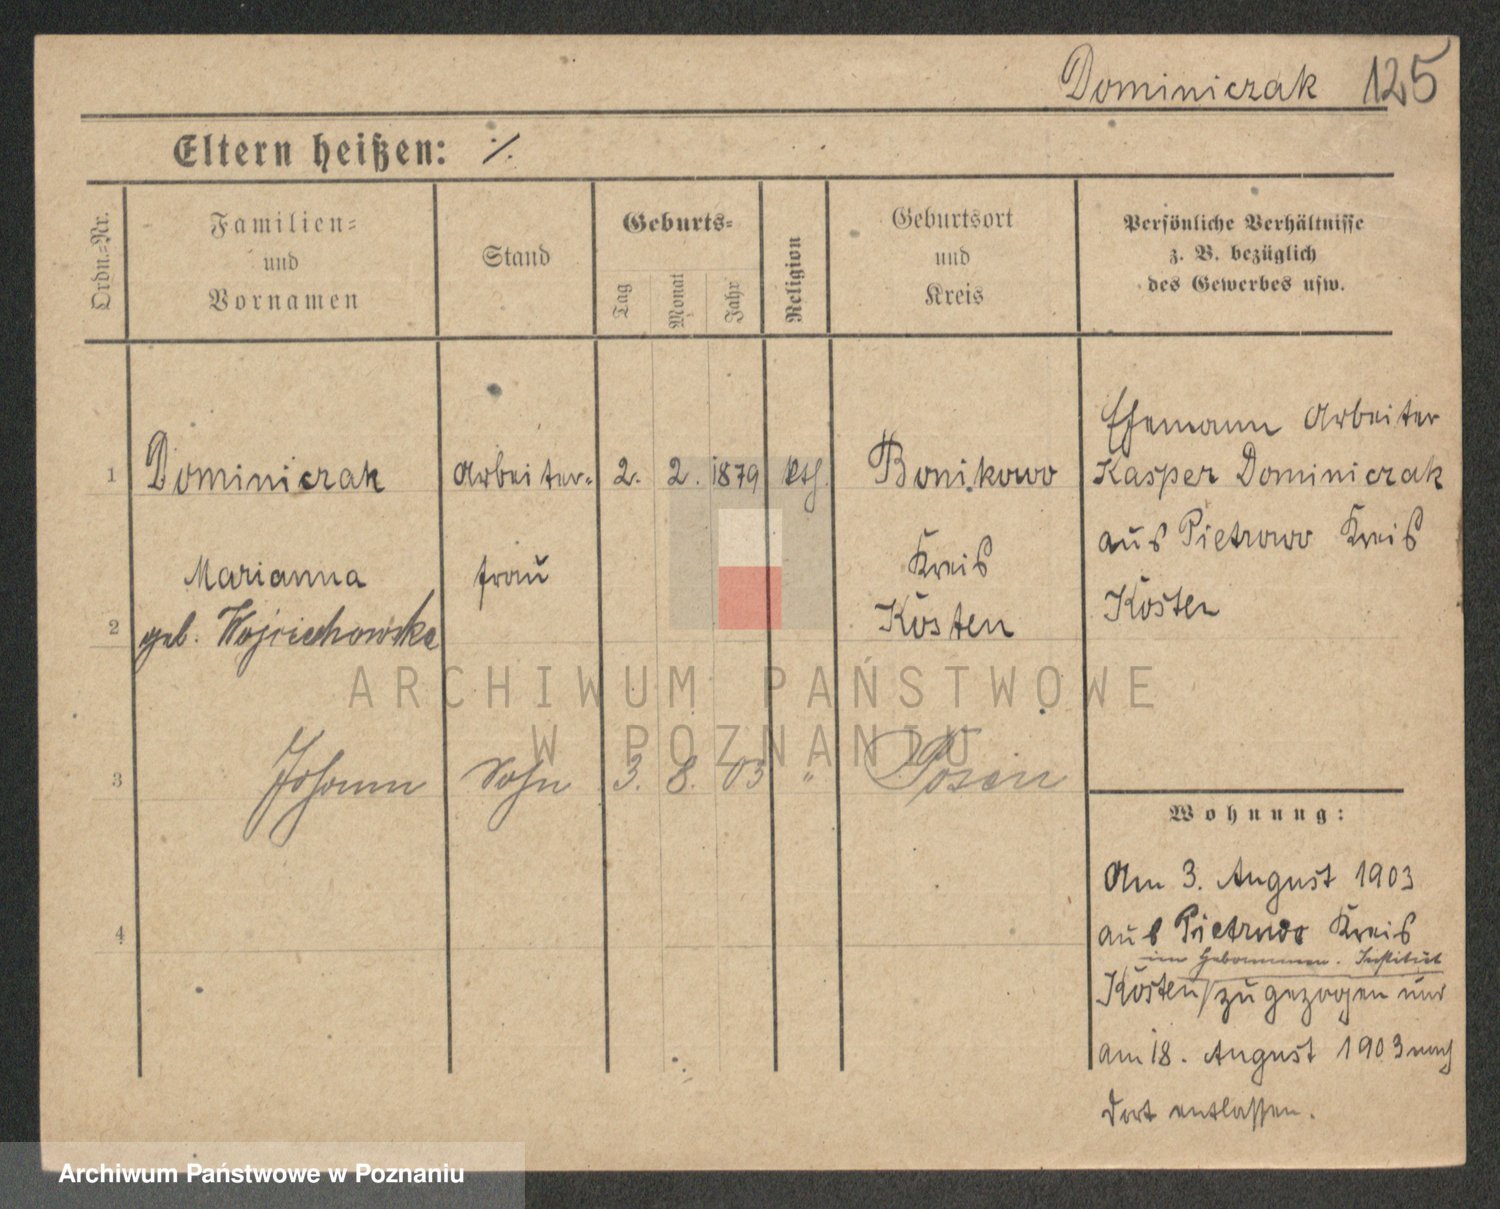 Dominiczak 125
Eltern heißen: ·/.
Ordn.-Nr.
Familien-
und
Vornamen
Stand
Geburts-
Tag
Monat
Jahr
Religion
Geburtsort
und
Kreis
Persönliche Verhältnisse
z. B. bezüglich
des Gewerbes usw.
1 Dominiczak Arbeiter- 2. 2. 1879 kth. Bonikowo
Marianna frau Kreis
2 geb. Wojciechowska Kosten
3 Johann Sohn 3. 8. 03 " Posen
4
Ehemann Arbeiter
Kasper Dominiczak
aus Pietrowo Kreis
Kosten
Wohnung:
Am 3. August 1903
aus Pietrowo Kreis
im Hebammen. Institut
Kosten / zugezogen und
am 18. August 1903 nach
dort entlassen.
ARCHIWUM PAŃSTWOWE
W POZNANIU
Archiwum Państwowe w Poznaniu